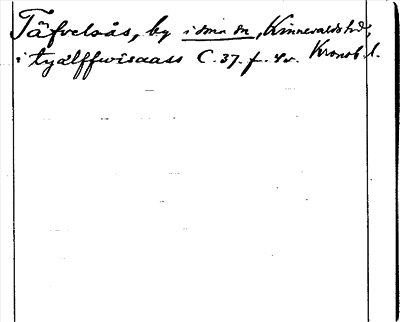 Täfvelsås, by i sma sn, Kinnevalds hd,
i tyälffwisaass C. 37. f. 4v. Kronob. l.